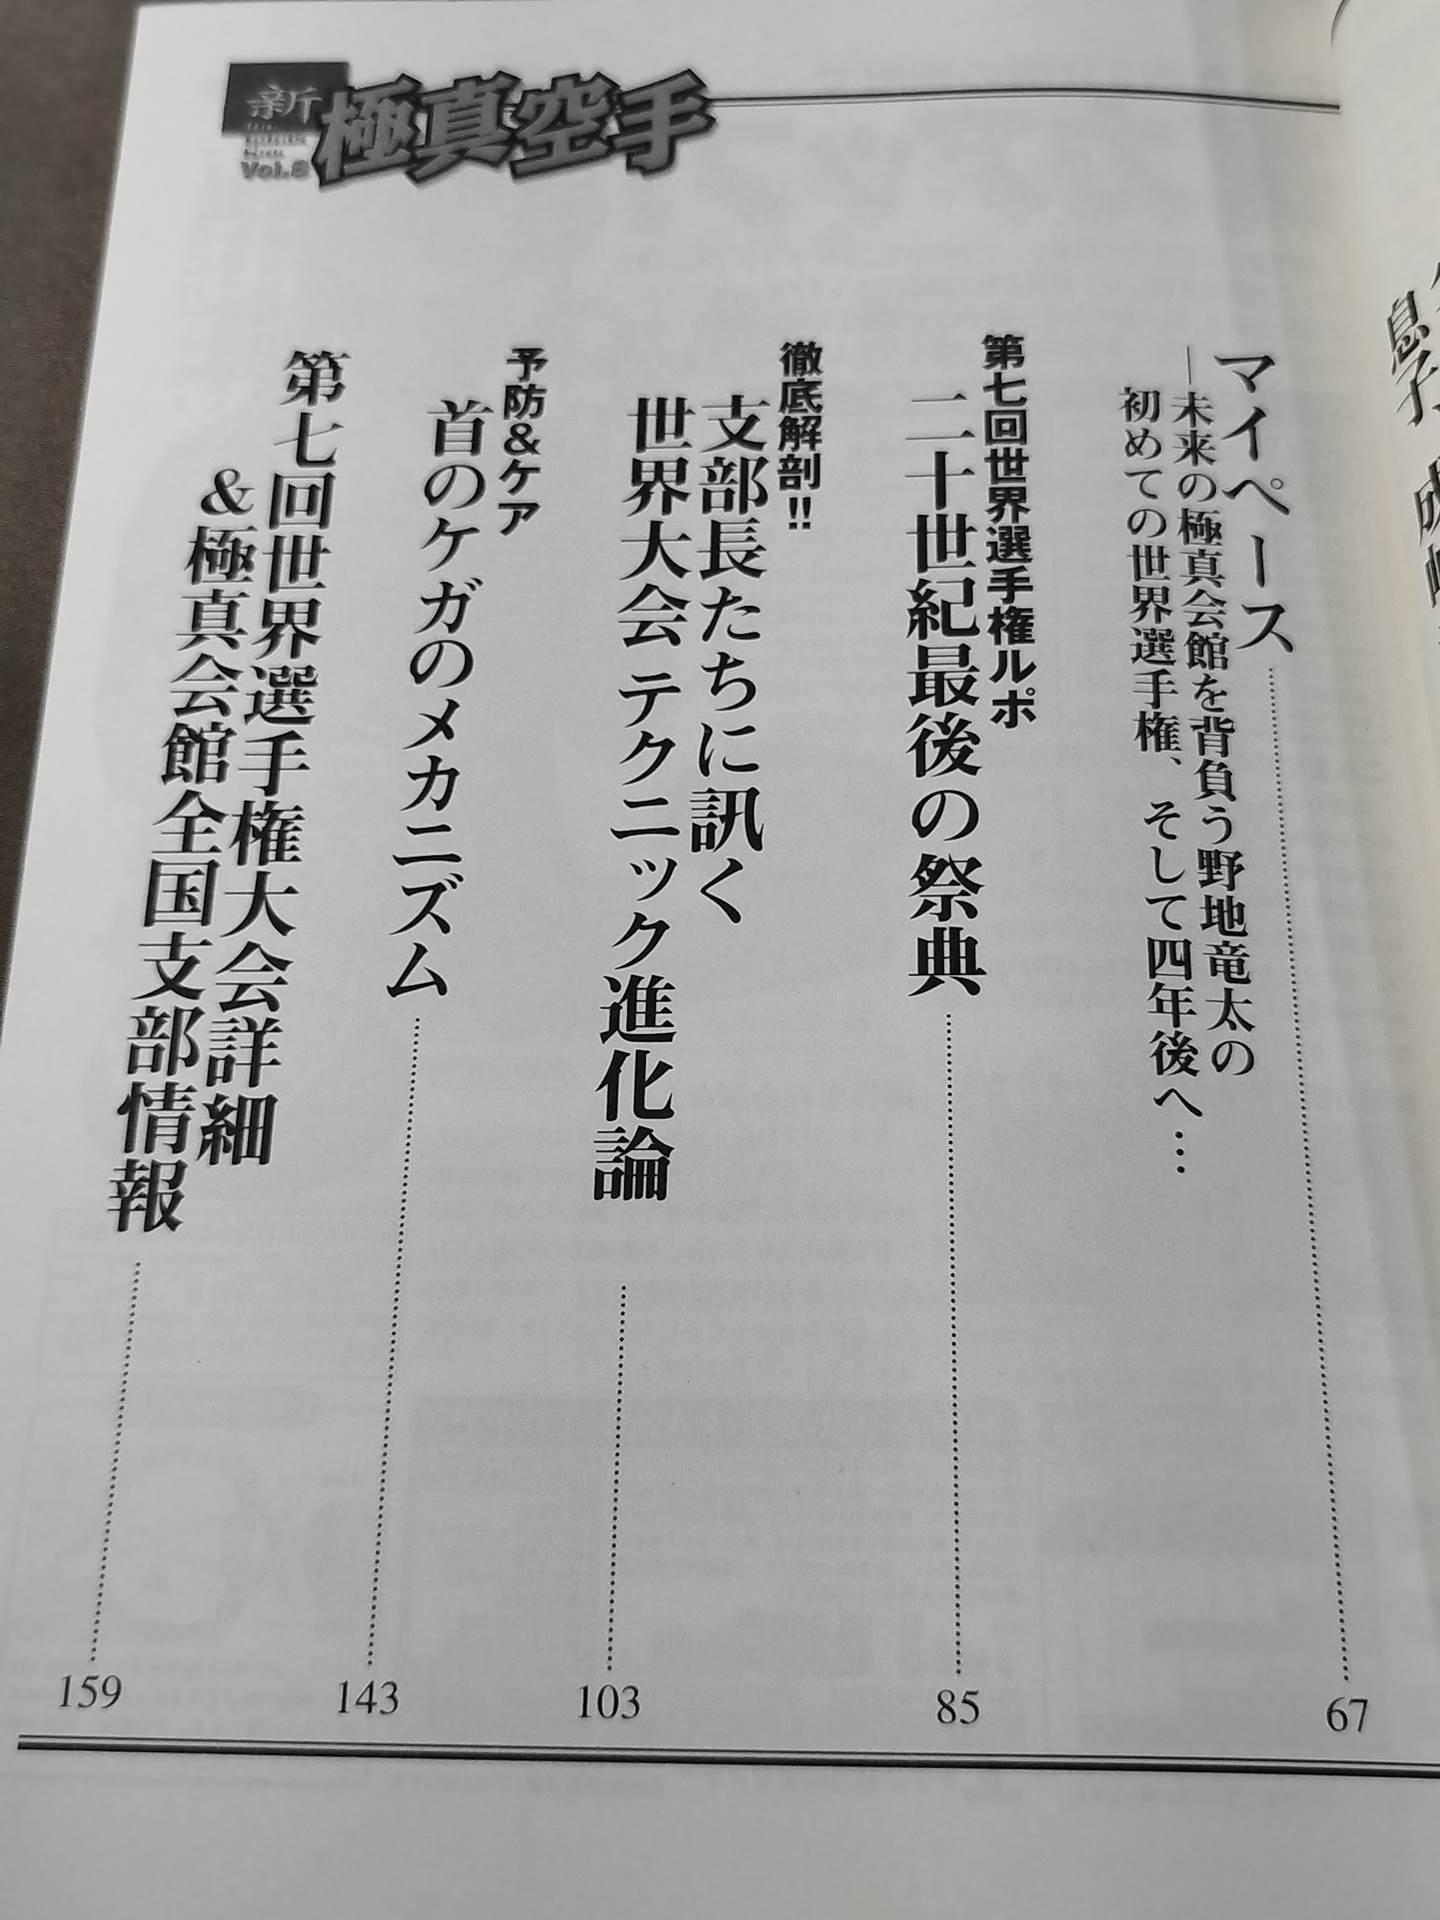 新
極真空手
Vol.8
マイペース
―未来の極真会館を背負う野地竜太の
初めての世界選手権、そして四年後へ…
67
第七回世界選手権ルポ
二十世紀最後の祭典
85
徹底解剖!!
支部長たちに訊く
世界大会テクニック進化論
103
予防&ケア
首のケガのメカニズム
143
第七回世界選手権大会詳細
&極真会館全国支部情報
159
息子、